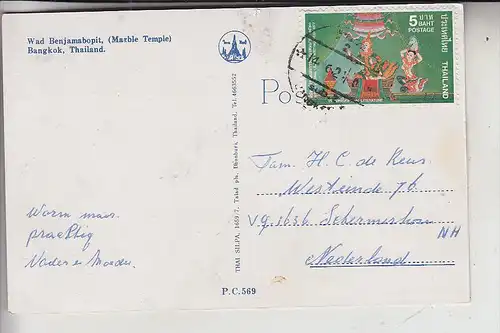 Wad Benjamabopit, (Marble Temple)
Bangkok, Thailand.
5 บาท
BAHT
POSTAGE
ประเทศไทย
THAILAND
Warm maar
prachtig
Vader en Moeder
THAI SILPA, Tel. 4663557
P.C.569
Fam. H. C. de Reus
Westeinde 76
1636 Schermerhorn
NH
Nederland